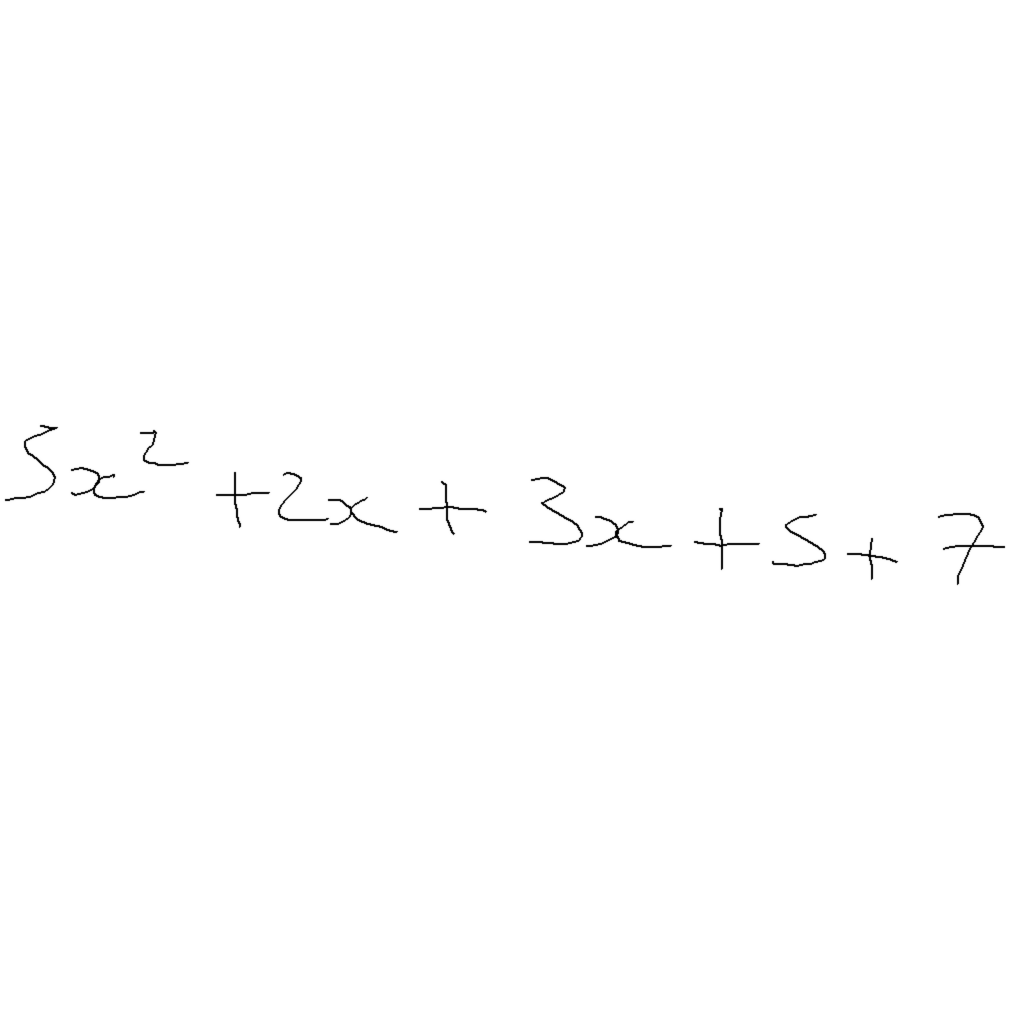 5x² + 2x + 3x + 5 + 7